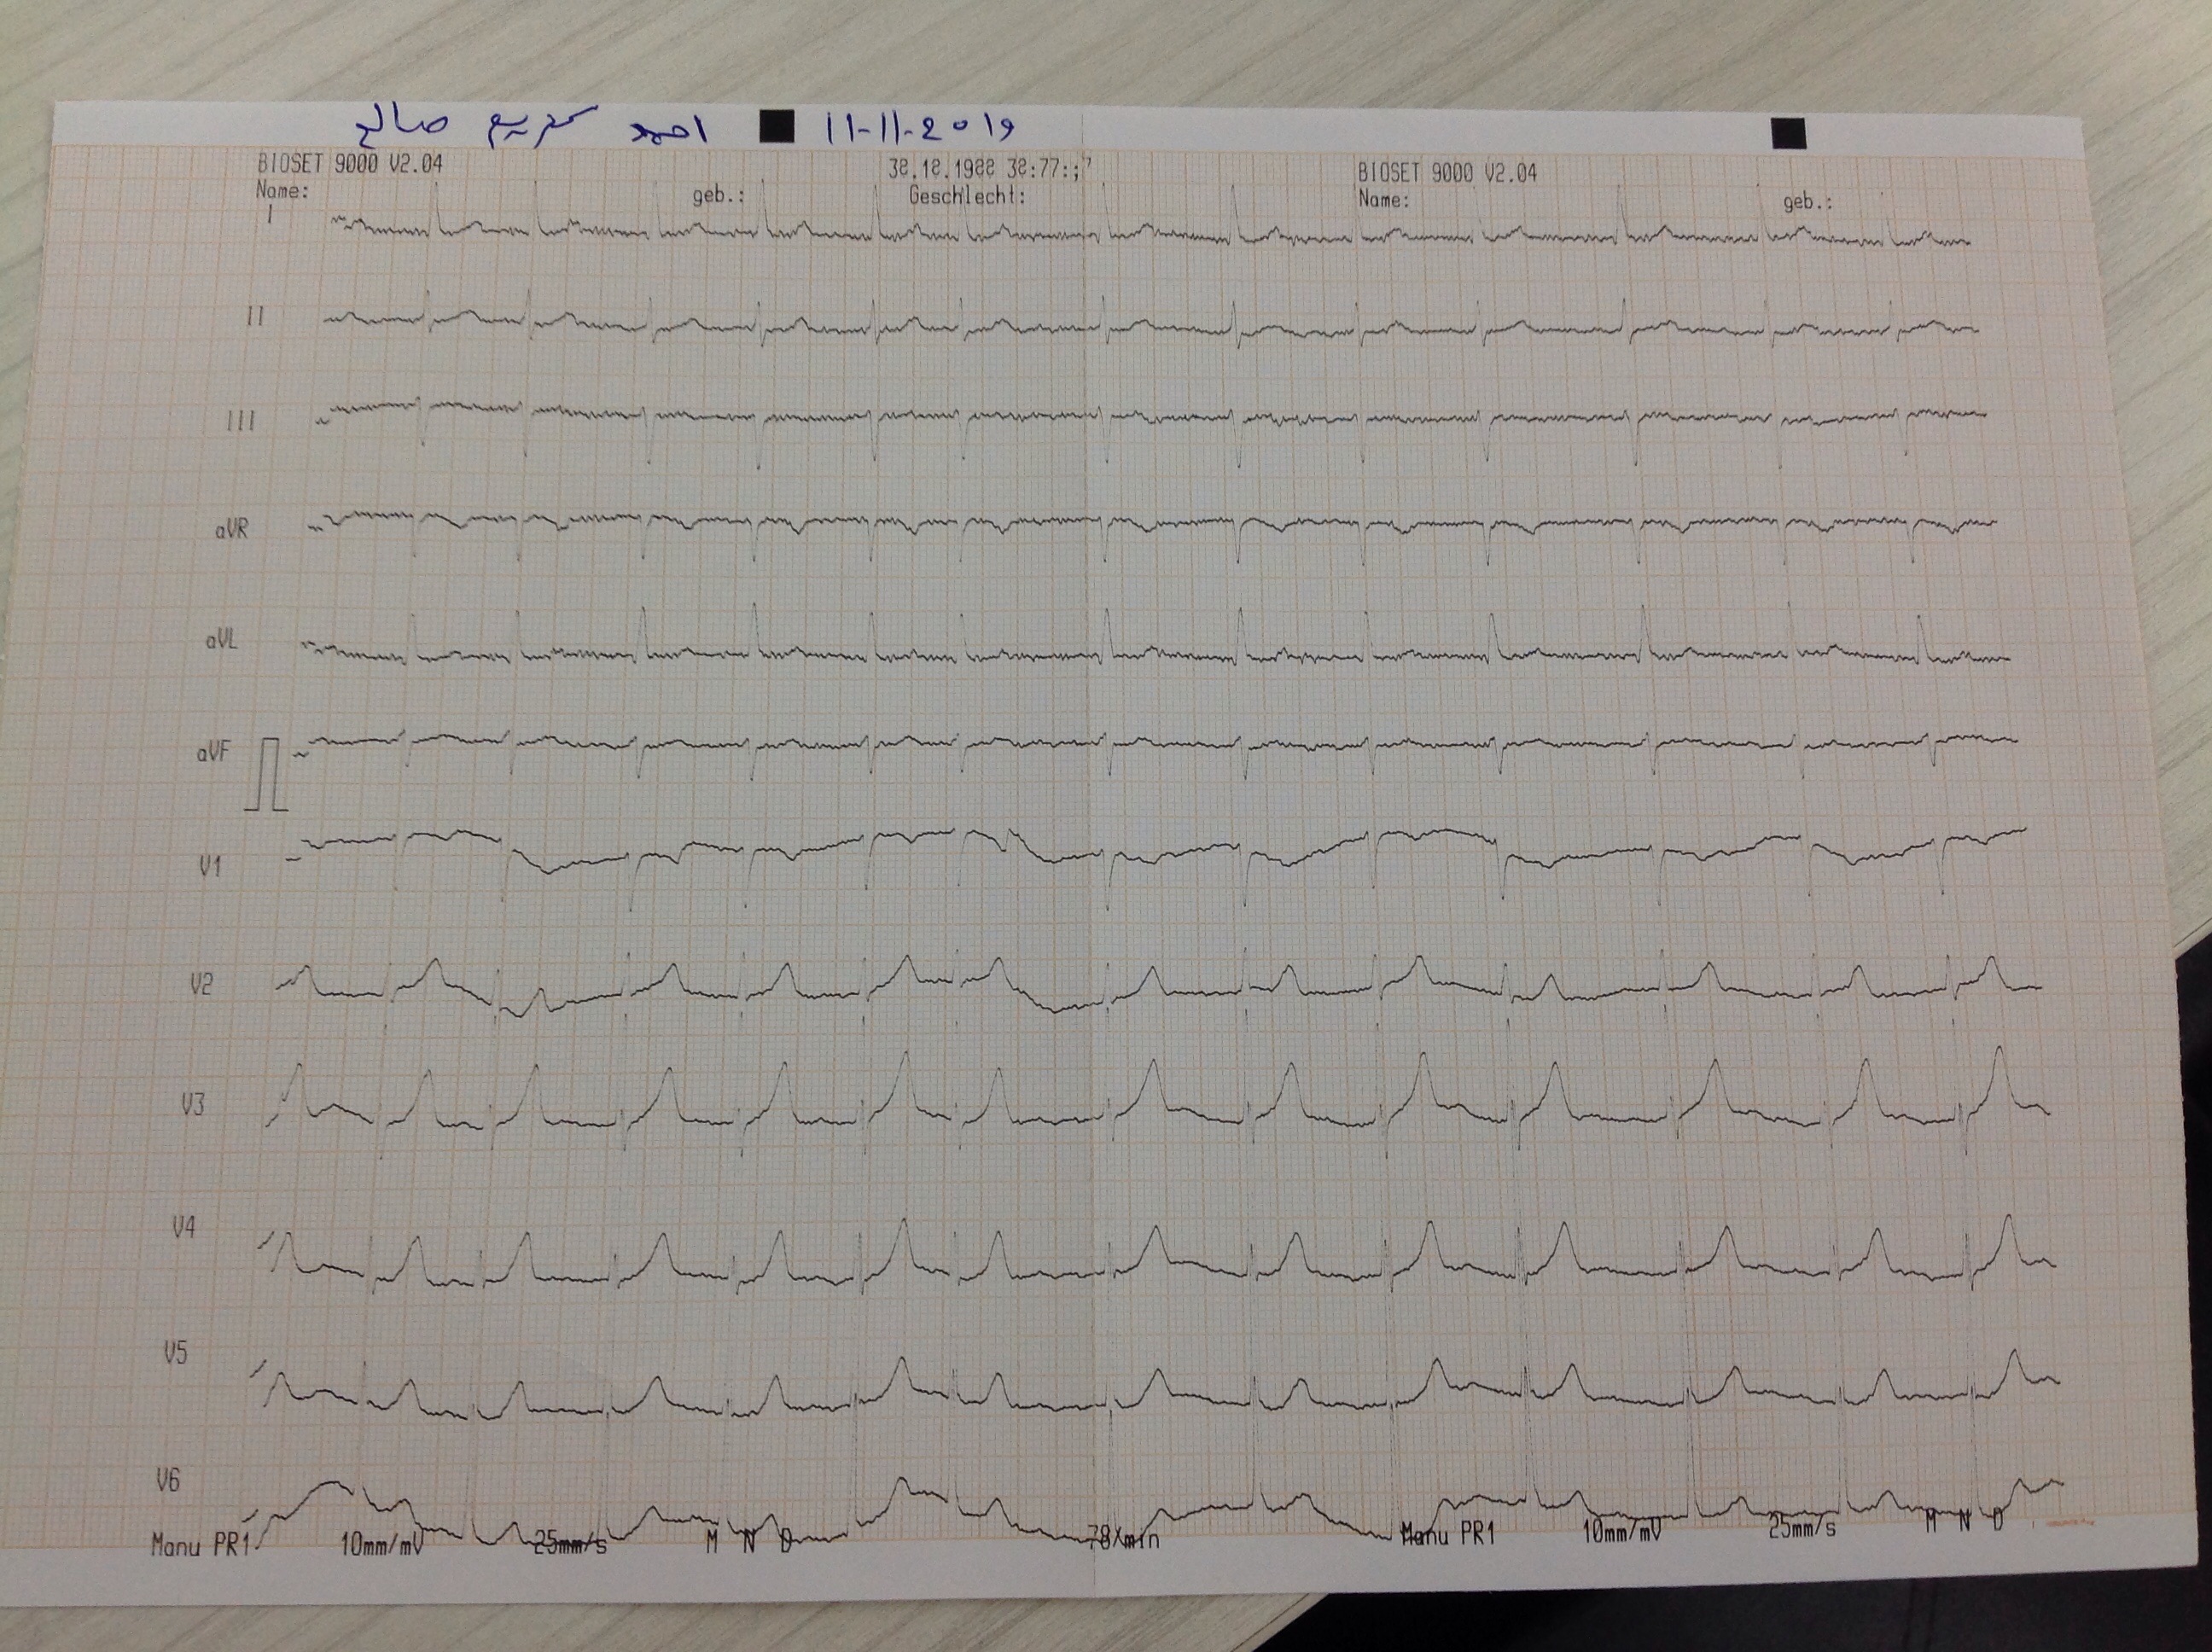 احمد كريم صالح 11-11-2019
BIOSET 9000 V2.04 38.18.1988 38:77:;7 BIOSET 9000 V2.04
Name: geb.: Geschlecht: Name: geb.:
I
II
III
aVR
aVL
aVF
V1
V2
V3
V4
V5
V6
Manu PR1 10mm/mV 25mm/s M N D 78/min Manu PR1 10mm/mV 25mm/s M N D